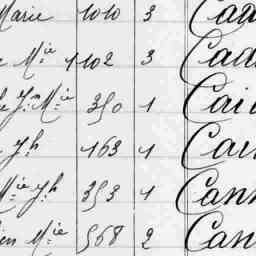 Marie 1010 3 Cad
Mie 1102 3 Cad
Jn Mie 350 1 Cai
Jh 163 1 Cai
Mie Jh 353 1 Cann
Mie 568 2 Cann